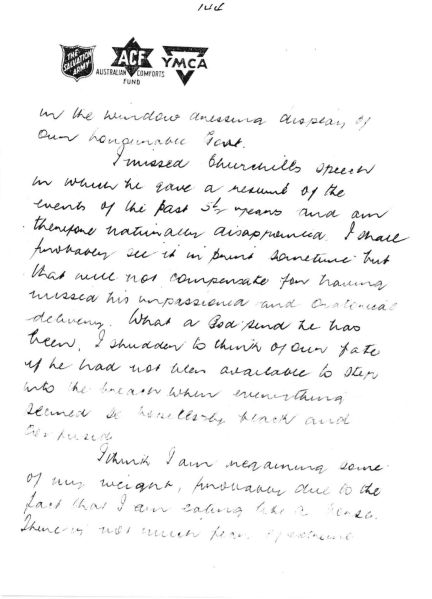 144
THE SALVATION ARMY
ACF
AUSTRALIAN COMFORTS FUND
YMCA
in the window dressing display of
our honourable Govt.
I missed Churchills speech
in which he gave a resumé of the
events of the past 5½ years and am
therefore naturally disappointed. I shall
probably see it in print sometime but
that will not compensate for having
missed his impassioned and oratorical
delivery. What a God send he has
been, I shudder to think of our fate
if he had not been available to step
into the breach when everything
seemed so hopelessly black and
I think I am regaining some
of my weight, probably due to the
fact that I am eating like a horse.
There is not much fear of